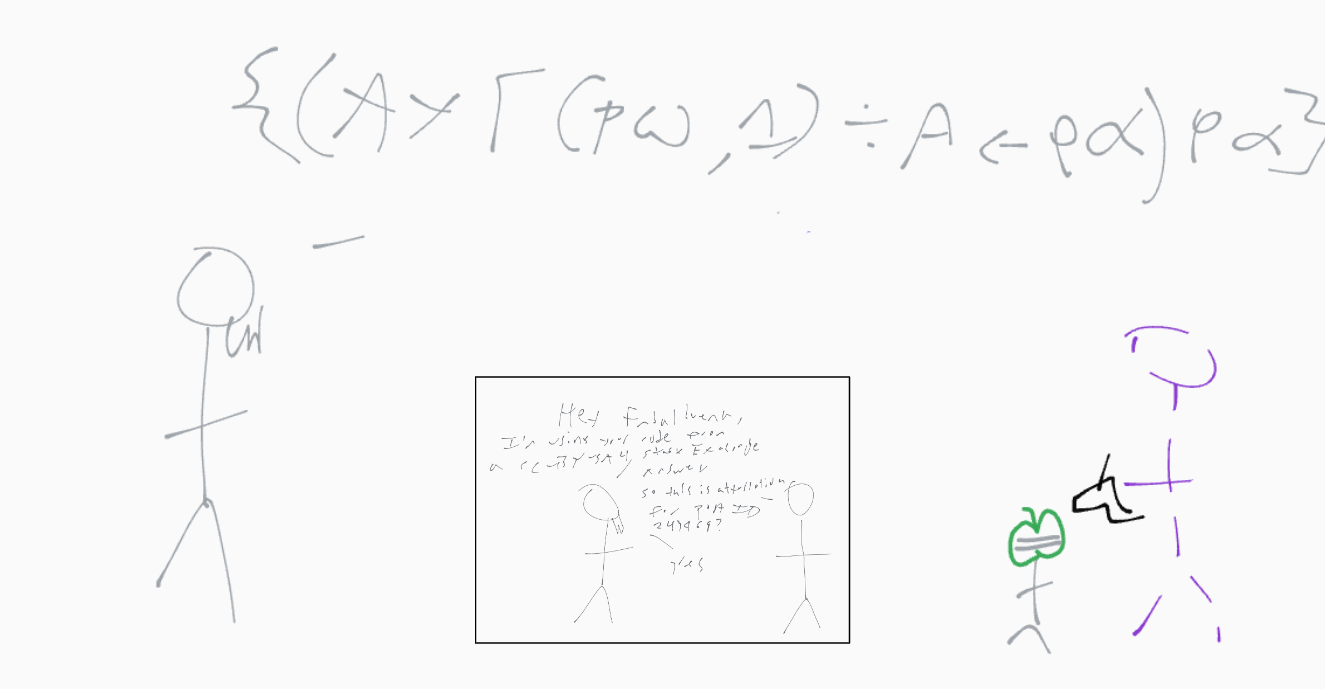 {(A×⌈(⍴⍵,1)÷A←⍴⍺)⍴⍺}
Hey
I'm using your code from
a CC-BY-SA 4, Stack Exchange
answer
so this is attribution
for post ID
yes